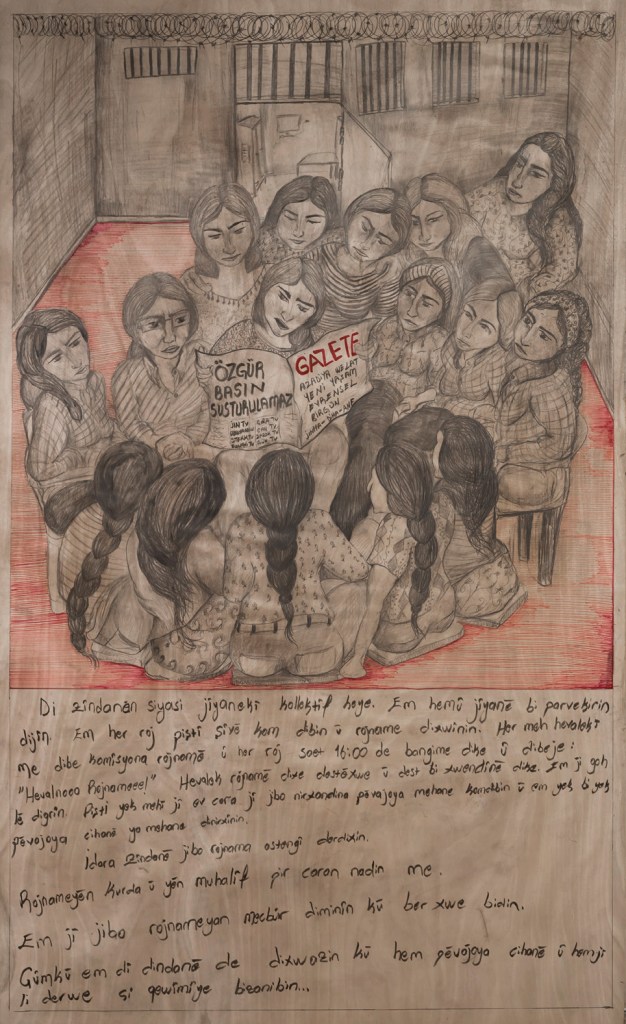 ÖZGÜR
BASIN
SUSTURULAMAZ
GAZETE
YENİ YAŞAM
EVRENSEL
BİRGÜN
Di zindanên siyasi jiyanekî kollektif heye. Em hemû jiyanê bi parvekirin
dijîn. Em her roj piştî şîvê kom dibin û rojname dixwînin. Her meh hevalekî
me dibe komîsyona rojnamê û her roj saet 16:00 de bangîme dike û dibeje:
"Hevalnooo Rojnameee!" Hevalek rojnamê dixe destêxwe û dest bi xwendinê dike. Em jî goh
lê digrin. Piştî yek mehî jî ev cara jî jibo nirxandina pêvajoya mehane komdibin û em yek bi yek
pêvajoya cihanê ya mehane dinirxînin.
İdara zindanê jibo rojnama astengî derdixin.
Rojnameyên kurda û yên muhalîf pir caran nadin me.
Em jî jibo rojnameyan mecbûr diminin kû ber xwe bidin.
Gûmkû em di dindanê de dixwazin kû hem pêvajoya cihanê û hemjî
li derve çi qewimîye bizanibin...